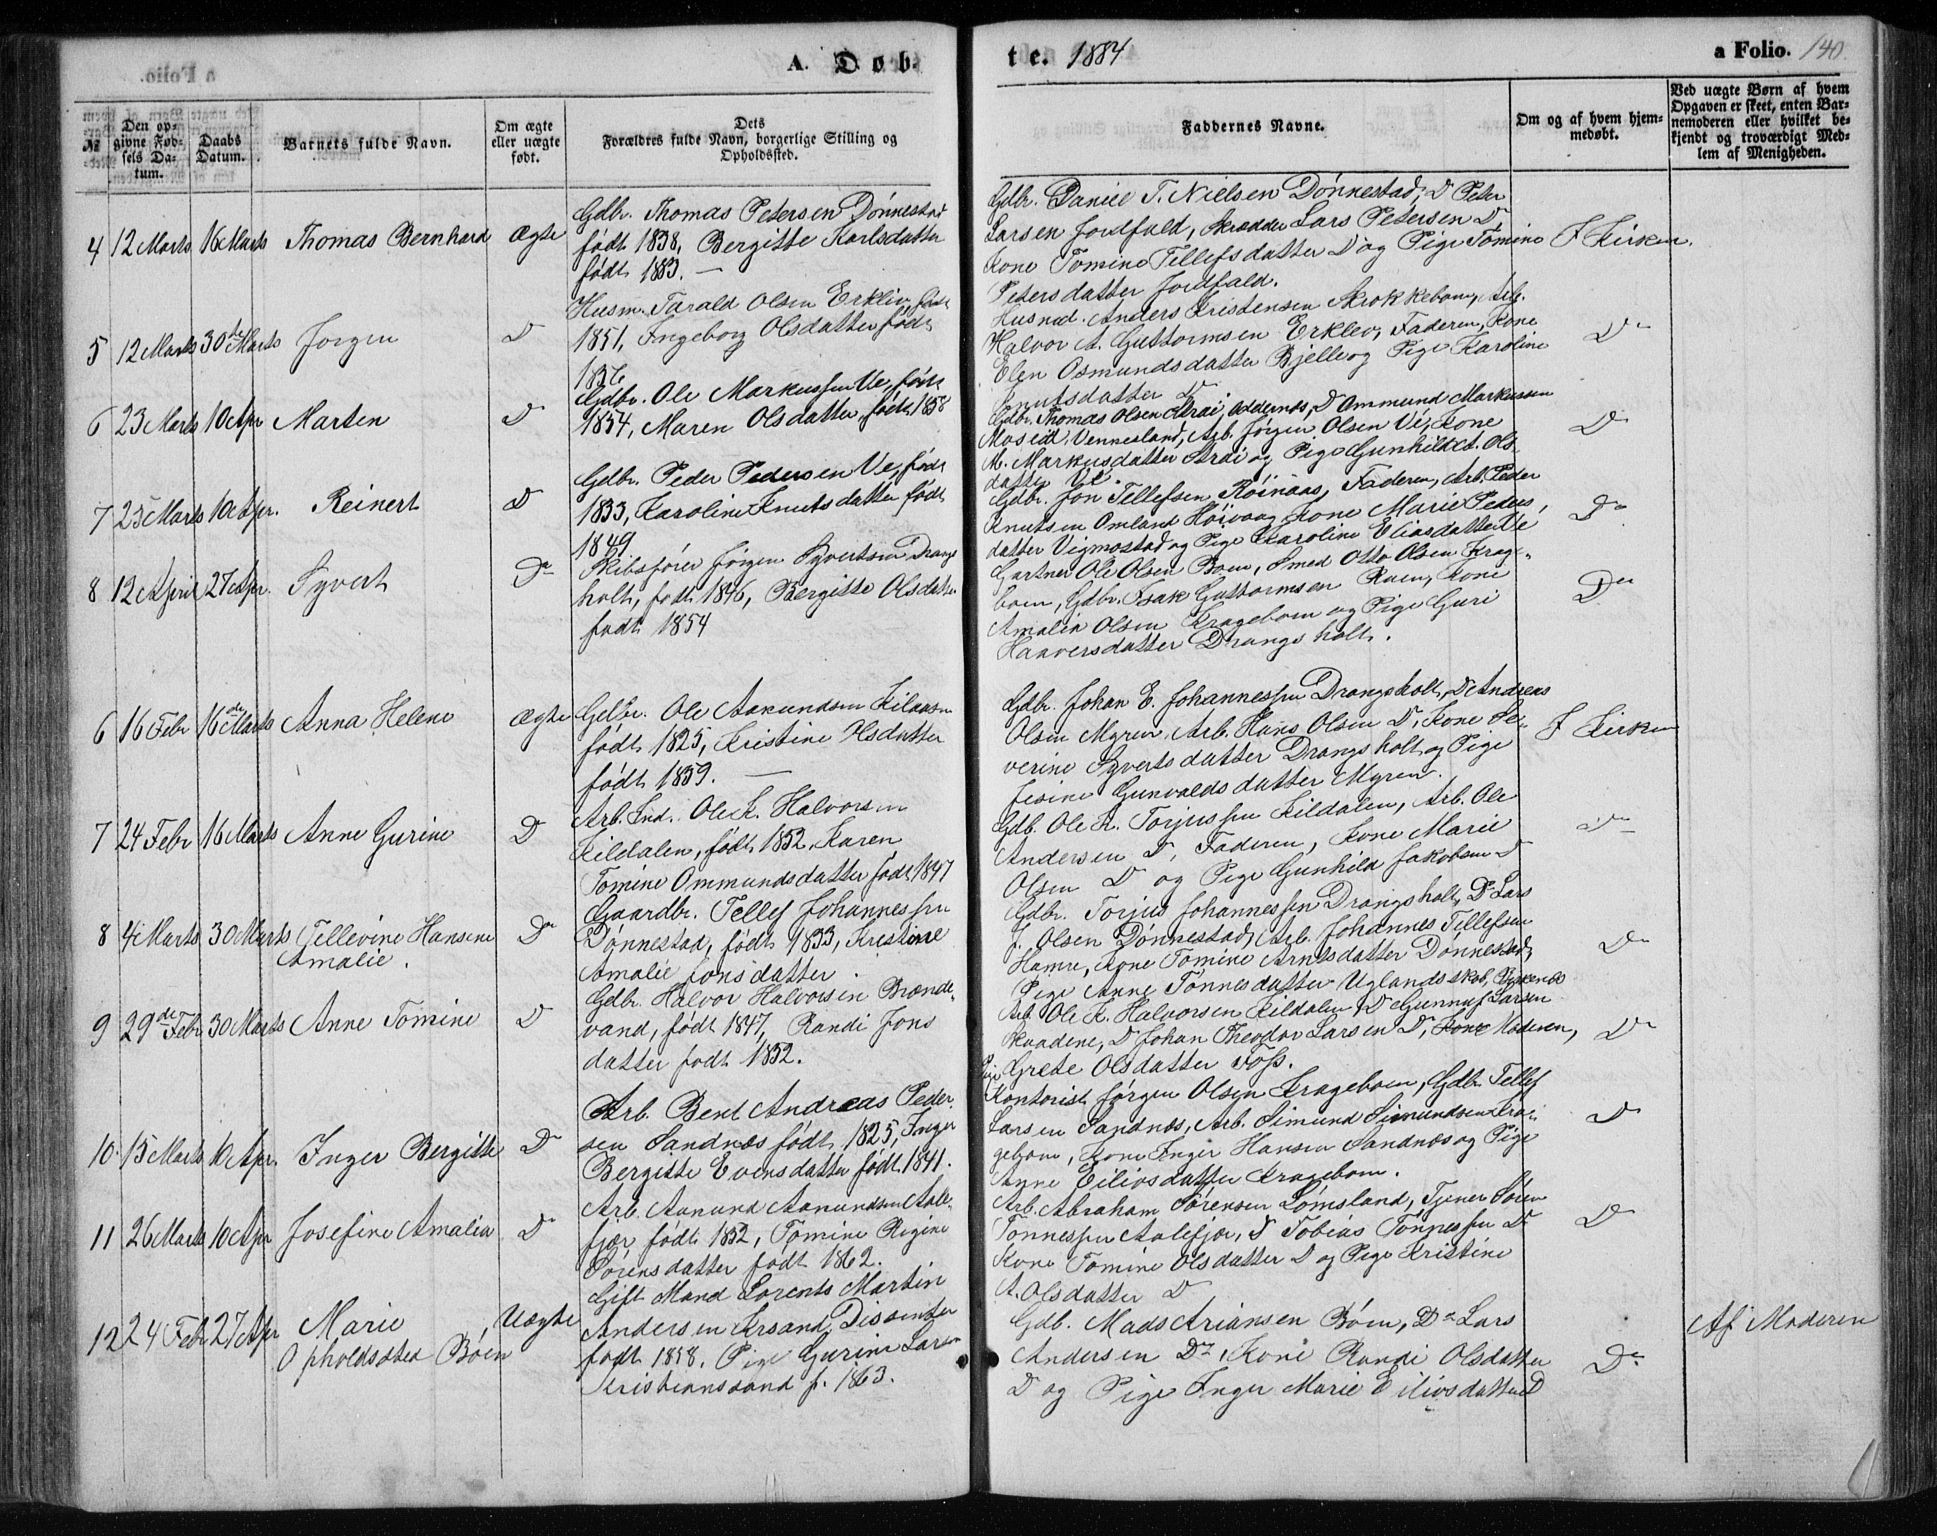 A. Døb-
te. 1884
a Folio. 140.
№
Den op-
givne Fød-
sels Da-
tum.
Daabs
Datum.
Barnets fulde Navn.
Om ægte
eller uægte
født.
Dets
Forældres fulde Navn, borgerlige Stilling og
Opholdssted.
Faddernes Navne.
Om og af hvem hjem-
medøbt.
Ved uægte Børn af hvem
Opgaven er skeet, enten Bar-
nemoderen eller hvilket be-
kjendt og troværdigt Med-
lem af Menigheden.
4 12 Marts 16 Marts Thomas Bernhard Ægte
Gdbr. Thomas Petersen Dønnestad
født 1838, Bergitte Karlsdatter
født 1883. —
Gdbr. Daniel T. Nielsen Dønnestad, Do Peter
Larsen Jordfald, Skrædder Lars Petersen Do
Kone Tomine Tellefsdatter Do og Pige Tomine
Petersdatter Jordfald.
I Kirken.
5 12 Marts 30de Marts Jørgen Do
Husm. Tarald Olsen Erkliv, født
1851, Ingeborg Olsdatter født
1856
Husmd. Anders Kristensen Skrokkeboen, Arb.
Halvor A. Guttormsen Erklev, Faderen, Kone
Elen Osmundsdatter Bjelle og Pige Karoline
Knutsdatter Do
Do
6 23 Marts 10 Apr Marten Do
Gdbr. Ole Markussen Ve, født
1854, Maren Olsdatter, født 1858
Gdbr. Thomas Olsen Strai, Oddernes, Do Ommund Markussen
Moseid, Vennesland, Arb. Jørgen Olsen Ve, Kone
M. Markusdatter Strai og Pige Gunhild A. Ols
datter Ve.
Do
7 25 Marts 10 Apr. Reinert Do
Gdbr. Peder Pedersen Ve, født
1833, Karoline Knutsdatter født
1849
Gdbr. Jon Tellefsen Røinaas, Faderen, Arb. Peder
Knutsen Omland Høivaag, Kone Marie Peders,
datter Vigmostad og Pige Karoline Eliasdatter Ve
Do
8 12 April 27 Apr. Syvert Do
Skibsfører Jørgen Syvertsen Drangs
holt, født 1846, Bergitte Olsdatter
født 1854
Gartner Ole Olsen Boen, Smed Otto Olsen Krage-
boen, Gdbr. Isak Guttormsen Roen, Kone
Amalia Olsen Krageboen og Pige Guri
Haaversdatter Drangsholt.
Do
6 16 Febr 16de Marts Anna Helene Ægte
Gdbr. Ole Aanundsen Kilaasen
født 1825, Kristine Olsdatter
født 1839. —
Gdbr. Johan E. Johannessen Drangsholt, Do Andreas
Olsen Myren, Arb. Hans Olsen Do, Kone Se-
verine Syvertsdatter Drangsholt og Pige
Jesine Gunvaldsdatter Myren.
I Kirken
7 24 Febr 16 Marts Anne Gurine Do
Arb. Ind. Ole K. Halvorsen
Kildalen, født 1852, Karen
Tomine Ommundsdatter født 1847
Gdb. Ole K. Torjussen Kildalen, Arb. Ole
Andersen Do, Faderen, Kone Marie
Olsen Do og Pige Gunhild Jakobsen Do
Do
8 4 Marts 30 Marts Tellevine Hansine
Amalie.
Do
Gaardbr. Tellef Johannessen
Dønnestad, født 1833, Kristine
Amalie Jonsdatter.
Gdbr. Torjus Johannessen Drangsholt, Do Lars
J. Olsen Dønnestad, Arb. Johannes Tellefsen
Hamre, Kone Tomine Arnesdatter Dønnestad,
Pige Anne Tønnesdatter Uglandsskob,
Do
9 29de Febr 30 Marts Anne Tomine Do
Gdbr. Halvor Halvorsen Brænde-
vand, født 1847, Randi Jons
datter født 1852.
Arb. Ole K. Halvorsen Kildalen, Do Gunnuf Larsen
Skaadene, Do Johan Theodor Larsen Do, Kone Moderen,
Pige Grete Olsdatter Voss.
Do
10. 15 Marts 10 Apr. Inger Bergitte Do
Arb. Bent Andreas Peder
sen Sandnæs født 1825, Inger
Bergitte Evensdatter født 1841.
Kontorist Jørgen Olsen Krageboen, Gdbr. Tellef
Larsen Sandnæs, Arb. Simund Simundsen Kra-
geboen, Kone Inger Hansen Sandnæs og Pige
Anne Eilivsdatter Krageboen.
Do
11 26 Marts 10 Apr Josefine Amalia Do
Arb. Aanund Aanundsen Aale-
fjær født 1852, Tomine Regine
Sørensdatter født 1862.
Arb. Abraham Sørensen Lømsland, Tjener Søren
Tønnessen Aalefjær, Do Tobias Tønnessen Do
Kone Tomine Olsdatter Do og Pige Kristine
A. Olsdatter Do
Do
12 24 Febr 27 Apr Marie
Opholdssted Bøen
Uægte
Gift Mand Lorents Martin
Andersen Krsand, Dissenter
født 1858. Pige Gurine Larsen
Kristianssand f. 1863.
Gdb. Mads Ariansen Bøen, Do Lars
Andersen Do, Kone Randi Olsdatter
Do og Pige Inger Marie Eilivsdatter Do
Do
Af Moderen